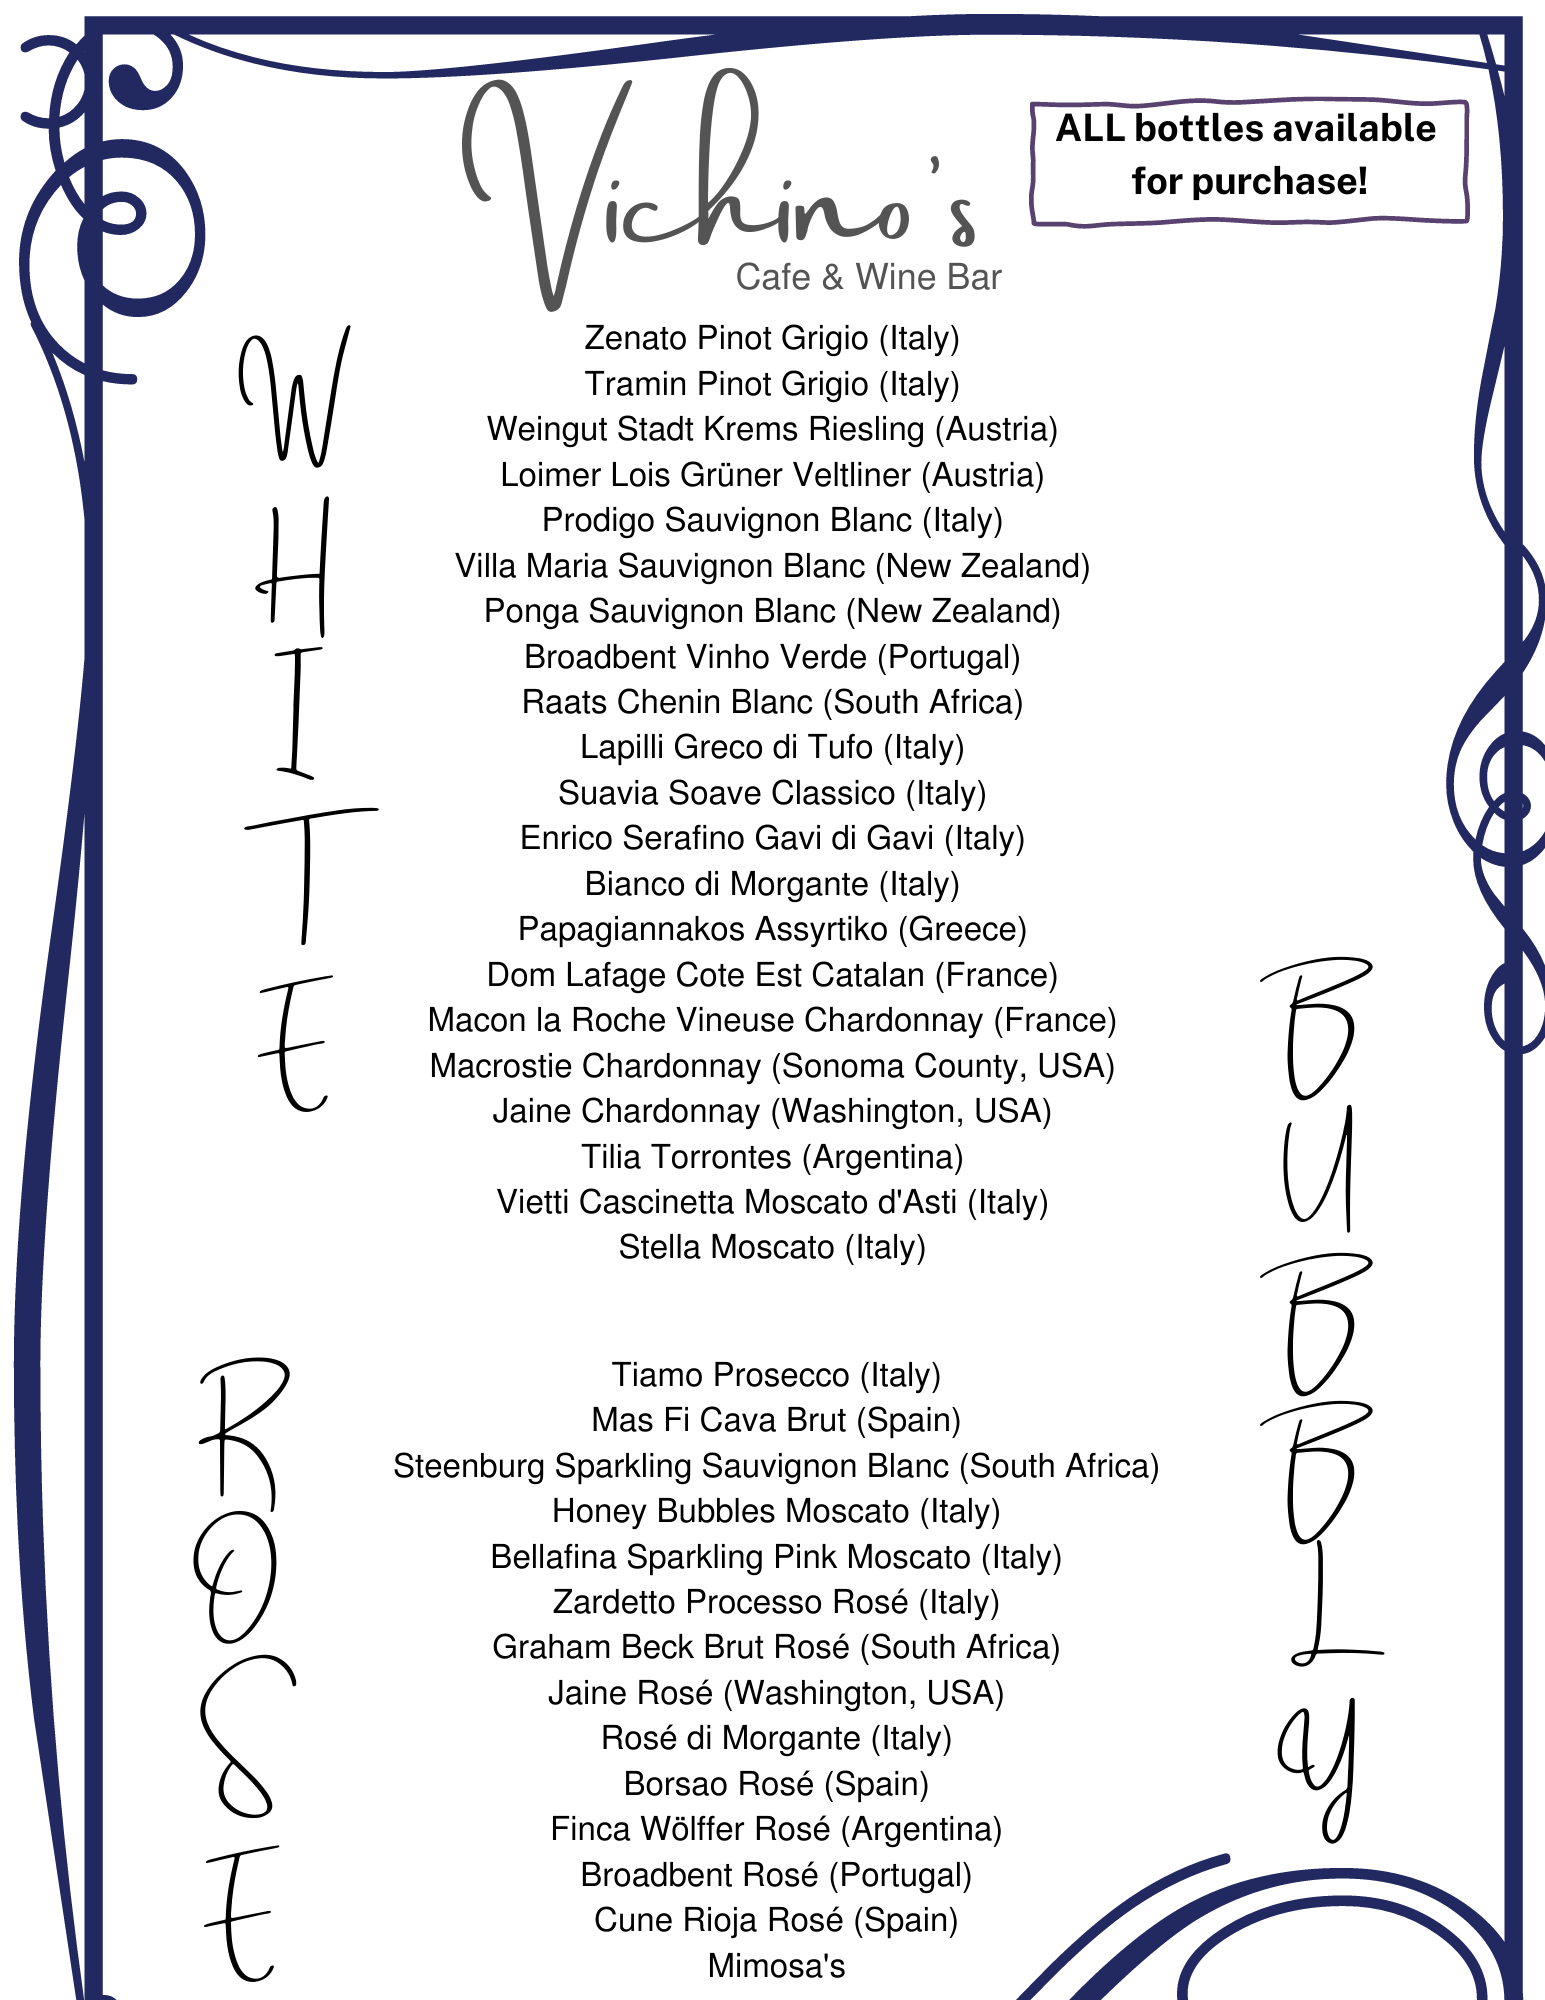 Vichino's
Cafe & Wine Bar
ALL bottles available
for purchase!
WHITE
Zenato Pinot Grigio (Italy)
Tramin Pinot Grigio (Italy)
Weingut Stadt Krems Riesling (Austria)
Loimer Lois Grüner Veltliner (Austria)
Prodigo Sauvignon Blanc (Italy)
Villa Maria Sauvignon Blanc (New Zealand)
Ponga Sauvignon Blanc (New Zealand)
Broadbent Vinho Verde (Portugal)
Raats Chenin Blanc (South Africa)
Lapilli Greco di Tufo (Italy)
Suavia Soave Classico (Italy)
Enrico Serafino Gavi di Gavi (Italy)
Bianco di Morgante (Italy)
Papagiannakos Assyrtiko (Greece)
Dom Lafage Cote Est Catalan (France)
Macon la Roche Vineuse Chardonnay (France)
Macrostie Chardonnay (Sonoma County, USA)
Jaine Chardonnay (Washington, USA)
Tilia Torrontes (Argentina)
Vietti Cascinetta Moscato d'Asti (Italy)
Stella Moscato (Italy)
ROSE
BUBBLY
Tiamo Prosecco (Italy)
Mas Fi Cava Brut (Spain)
Steenburg Sparkling Sauvignon Blanc (South Africa)
Honey Bubbles Moscato (Italy)
Bellafina Sparkling Pink Moscato (Italy)
Zardetto Processo Rosé (Italy)
Graham Beck Brut Rosé (South Africa)
Jaine Rosé (Washington, USA)
Rosé di Morgante (Italy)
Borsao Rosé (Spain)
Finca Wölffer Rosé (Argentina)
Broadbent Rosé (Portugal)
Cune Rioja Rosé (Spain)
Mimosa's